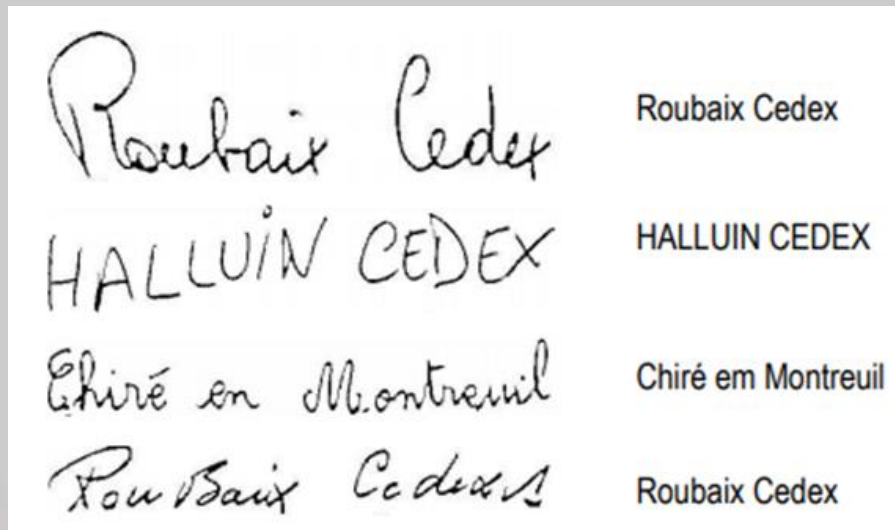 Roubaix Cedex Roubaix Cedex
HALLUiN CEDEX HALLUIN CEDEX
Chiré en Montreuil Chiré em Montreuil
RouBaix Cedex 1 Roubaix Cedex